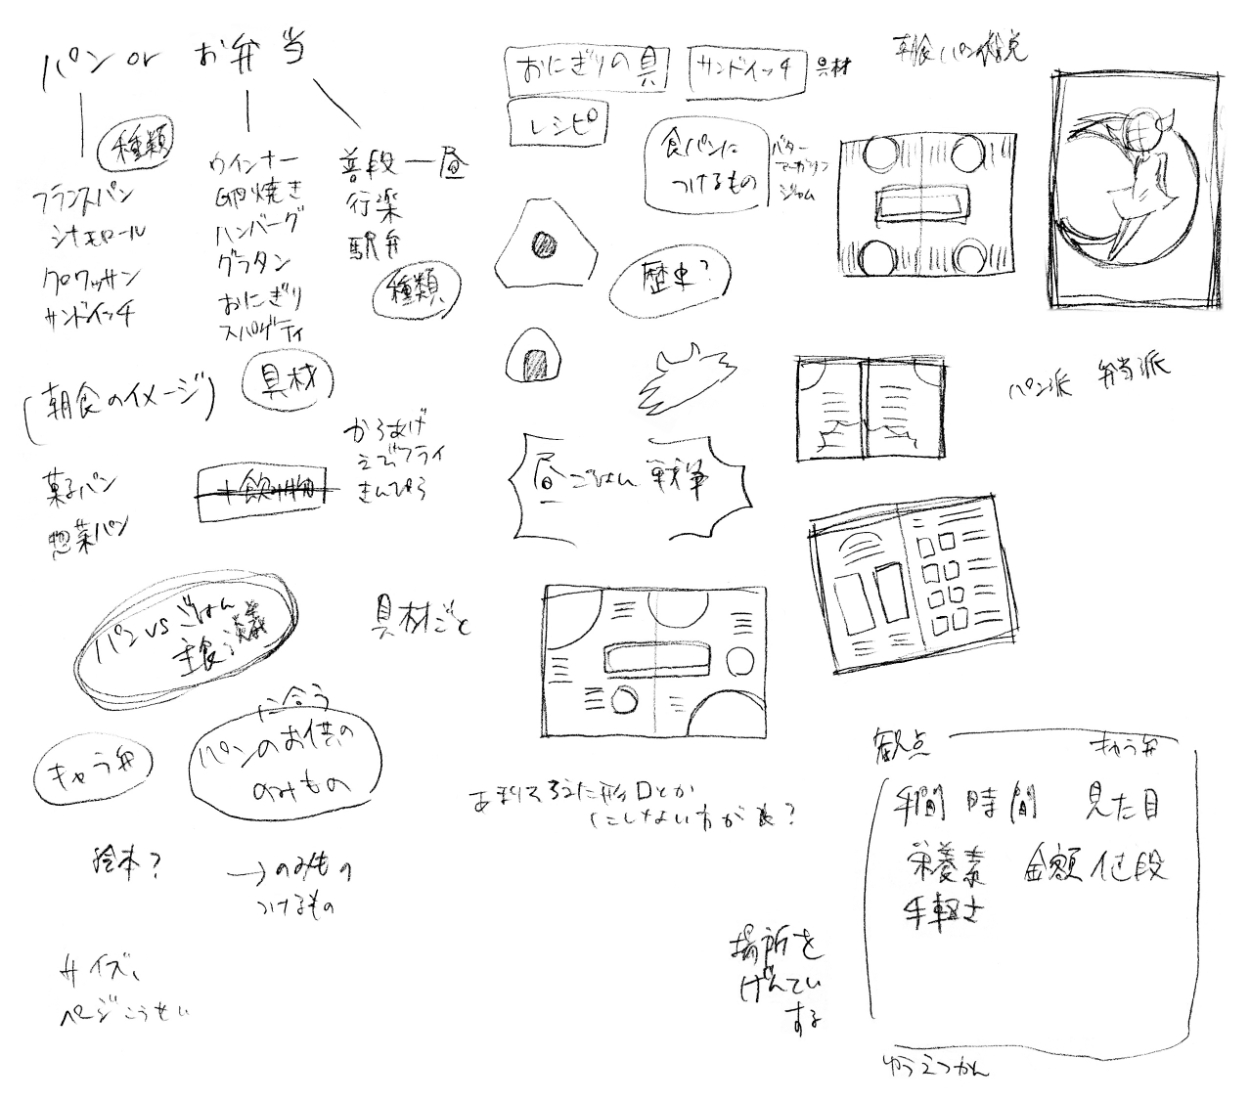 パン or お弁当
種類
フランスパン
シナモロール
クロワッサン
サンドイッチ
ウインナー
卵焼き
ハンバーグ
グラタン
おにぎり
スパゲティ
普段 ー 昼
行楽
駅弁
種類
(朝食のイメージ)
具材
菓子パン
惣菜パン
+飲み物
からあげ
えびフライ
きんぴら
パン vs ごはん
主食
具材ごと
キャラ弁
に合う
パンのお供の
のみもの
絵本?
→のみもの
つけるもの
サイズ、
ページこうせい
おにぎりの具
サンドイッチ
具材
レシピ
食パンに
つけるもの
バター
マーガリン
ジャム
歴史?
昼ごはん 戦争
あまりそろえた形口とか
にしない方が良?
朝食パン
パン派 弁当派
観点
キャラ弁
手間 時間 見た目
栄養素 金額 値段
手軽さ
場所を
げんてい
する
ゆうえつかん